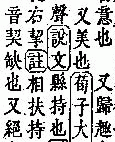 意也 又歸趣
又美也 荀子大
聲說文縣持也
右挈註相扶持
音契缺也又絕